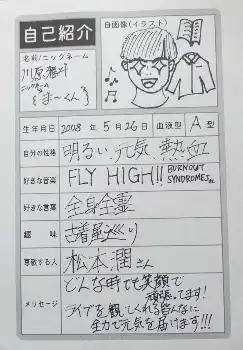 自己紹介
自画像(イラスト)
名前/ニックネーム
川原
{まーくん}
生年月日 2008年5月26日 血液型 A型
自分の性格 明るい 元気 熱血
好きな音楽 FLY HIGH!! BURNOUT
SYNDROMES
好きな言葉 全身全霊
趣味 古着屋巡り
尊敬する人 松本潤さん
メッセージ どんな時でも笑顔で
頑張ってます!
ライブを観てくれる皆んなに
全力で元気を届けます!!!